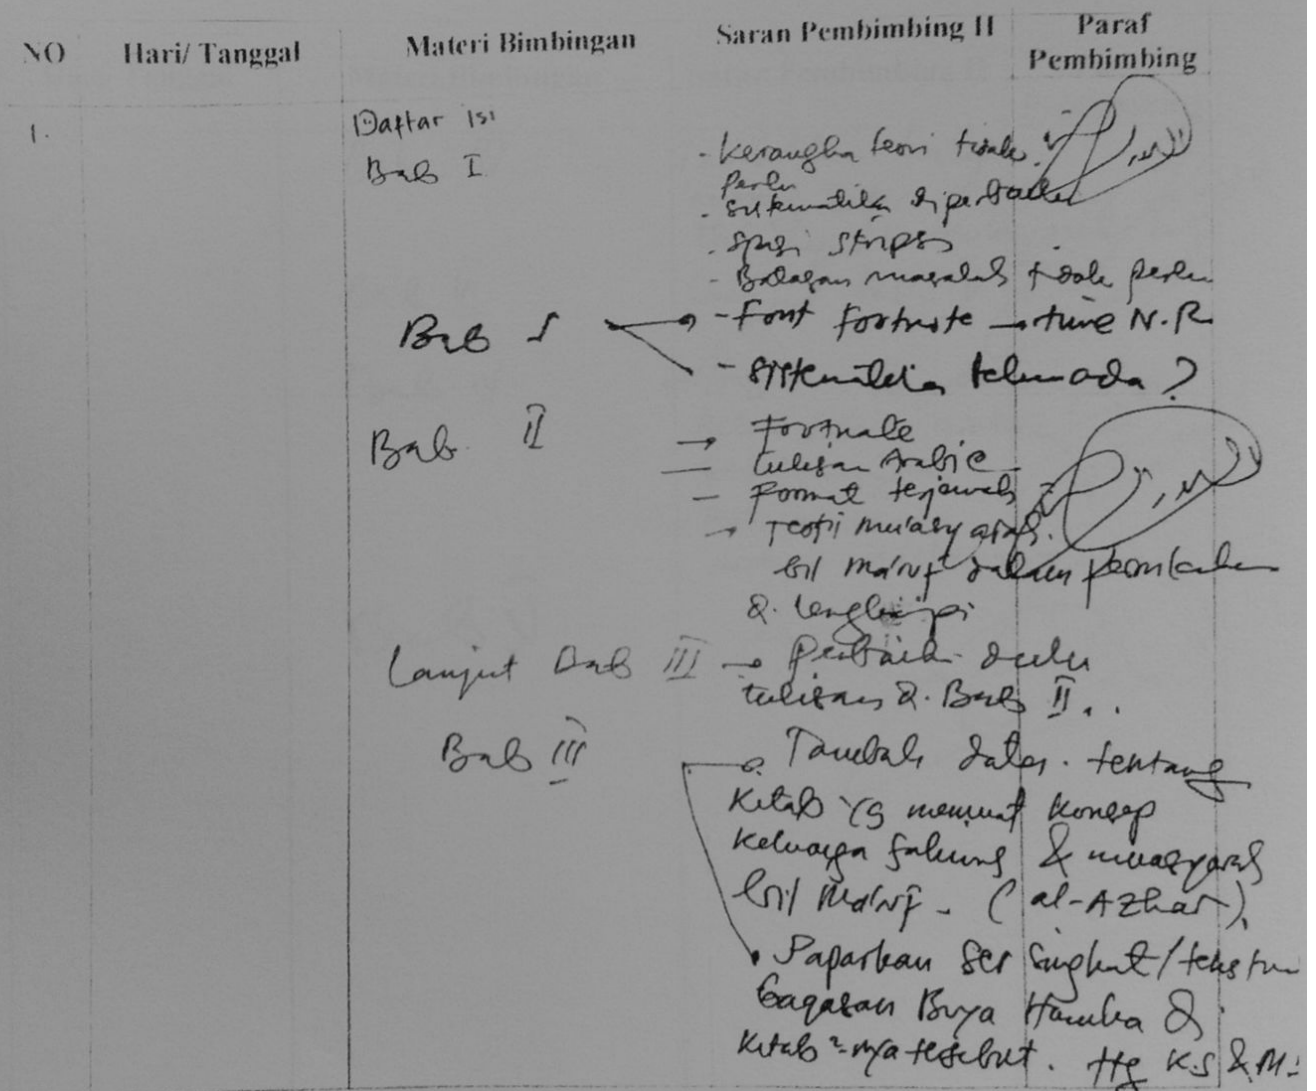 NO Hari/ Tanggal Materi Bimbingan Saran Pembimbing II Paraf Pembimbing
1. Daftar Isi
Bab I - Kerangka teori tidak
perlu
- Sistematika diperbaiki
- Spasi skripsi
- Batasan masalah tidak perlu
Bab I - Font footnote → time N.R
- Sistematika
Bab II → Footnote
- tulisan Arabic
- Format terjemah
→ Teori mu'asyarah
bil ma'ruf dalam pernikahan
d. lengkapi
Lanjut Bab III → Perbaiki dulu
tulisan d. Bab II..
Bab III Tambah data. tentang
Kitab yg memuat konsep
Keluarga sakinah & muasyarah
bil ma'ruf. (al-Azhar).
Paparkan singkat/
Gagasan Buya Hamka d.
Kitab²nya tersebut. ttg K.S & M.